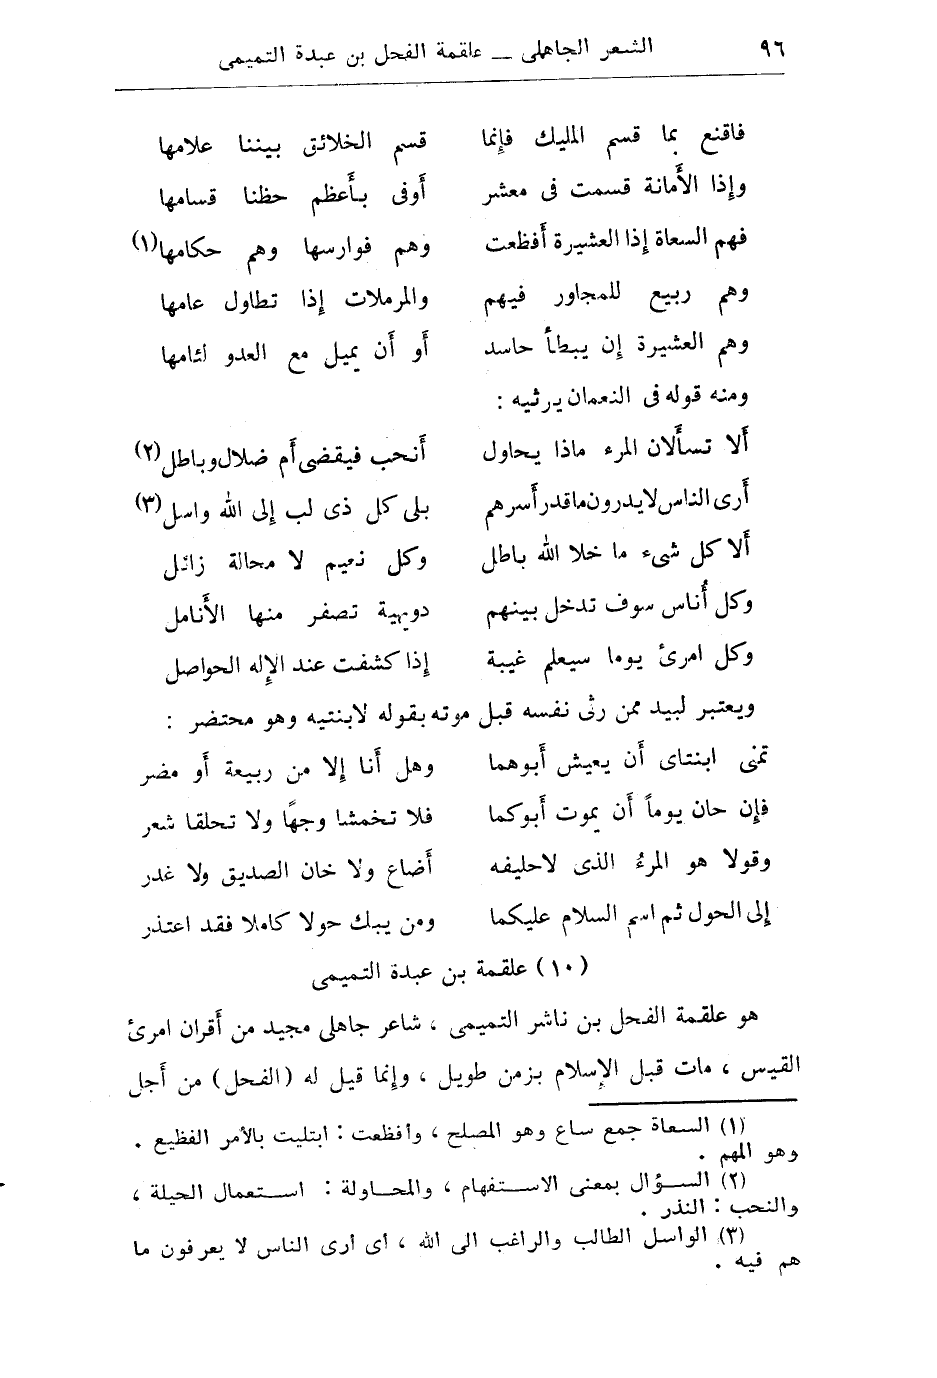 ٩٦ الشعر الجاهلى — علقمة الفحل بن عبدة التميمى
فاقنع بما قسم المليك فإنما قسم الخلائق بيننا علامها
وإذا الأمانة قسمت فى معشر أوفى بأعظم حظنا قسامها
فهم السعاة إذا العشيرة أفظعت وهم فوارسها وهم حكامها(١)
وهم ربيع للمجاور فيهم والمرملات إذا تطاول عامها
وهم العشيرة إن يبطأ حاسد أو أن يميل مع العدو لئامها
ومنه قوله فى النعمان يرثيه :
ألا تسألان المرء ماذا يحاول أنحب فيقضى أم ضلال وباطل(٢)
أرى الناس لا يدرون ما قدر أسرهم بلى كل ذى لب إلى الله واسل(٣)
ألا كل شىء ما خلا الله باطل وكل نعيم لا محالة زائل
وكل أُناس سوف تدخل بينهم دويهية تصفر منها الأنامل
وكل امرئ يوما سيعلم غيبة إذا كشفت عند الإله الحواصل
ويعتبر لبيد ممن رثى نفسه قبل موته بقوله لابنتيه وهو محتضر :
تمنى ابنتاى أن يعيش أبوهما وهل أنا إلا من ربيعة أو مضر
فإن حان يوماً أن يموت أبوكما فلا تخمشا وجهًا ولا تحلقا شعر
وقولا هو المرءُ الذى لاحليفه أضاع ولا خان الصديق ولا غدر
إلى الحول ثم اسم السلام عليكما ومن يبك حولا كاملا فقد اعتذر
(١٠) علقمة بن عبدة التميمى
هو علقمة الفحل بن ناشر التميمى ، شاعر جاهلى مجيد من أقران امرئ
القيس ، مات قبل الإسلام بزمن طويل ، وإنما قيل له (الفحل) من أجل
(١) السعاة جمع ساع وهو المصلح ، وأفظعت : ابتليت بالأمر الفظيع .
وهو المهم .
(٢) السؤال بمعنى الاستفهام ، والمحاولة : استعمال الحيلة ،
والنحب : النذر .
(٣) الواسل الطالب والراغب الى الله ، أى ارى الناس لا يعرفون ما
هم فيه .